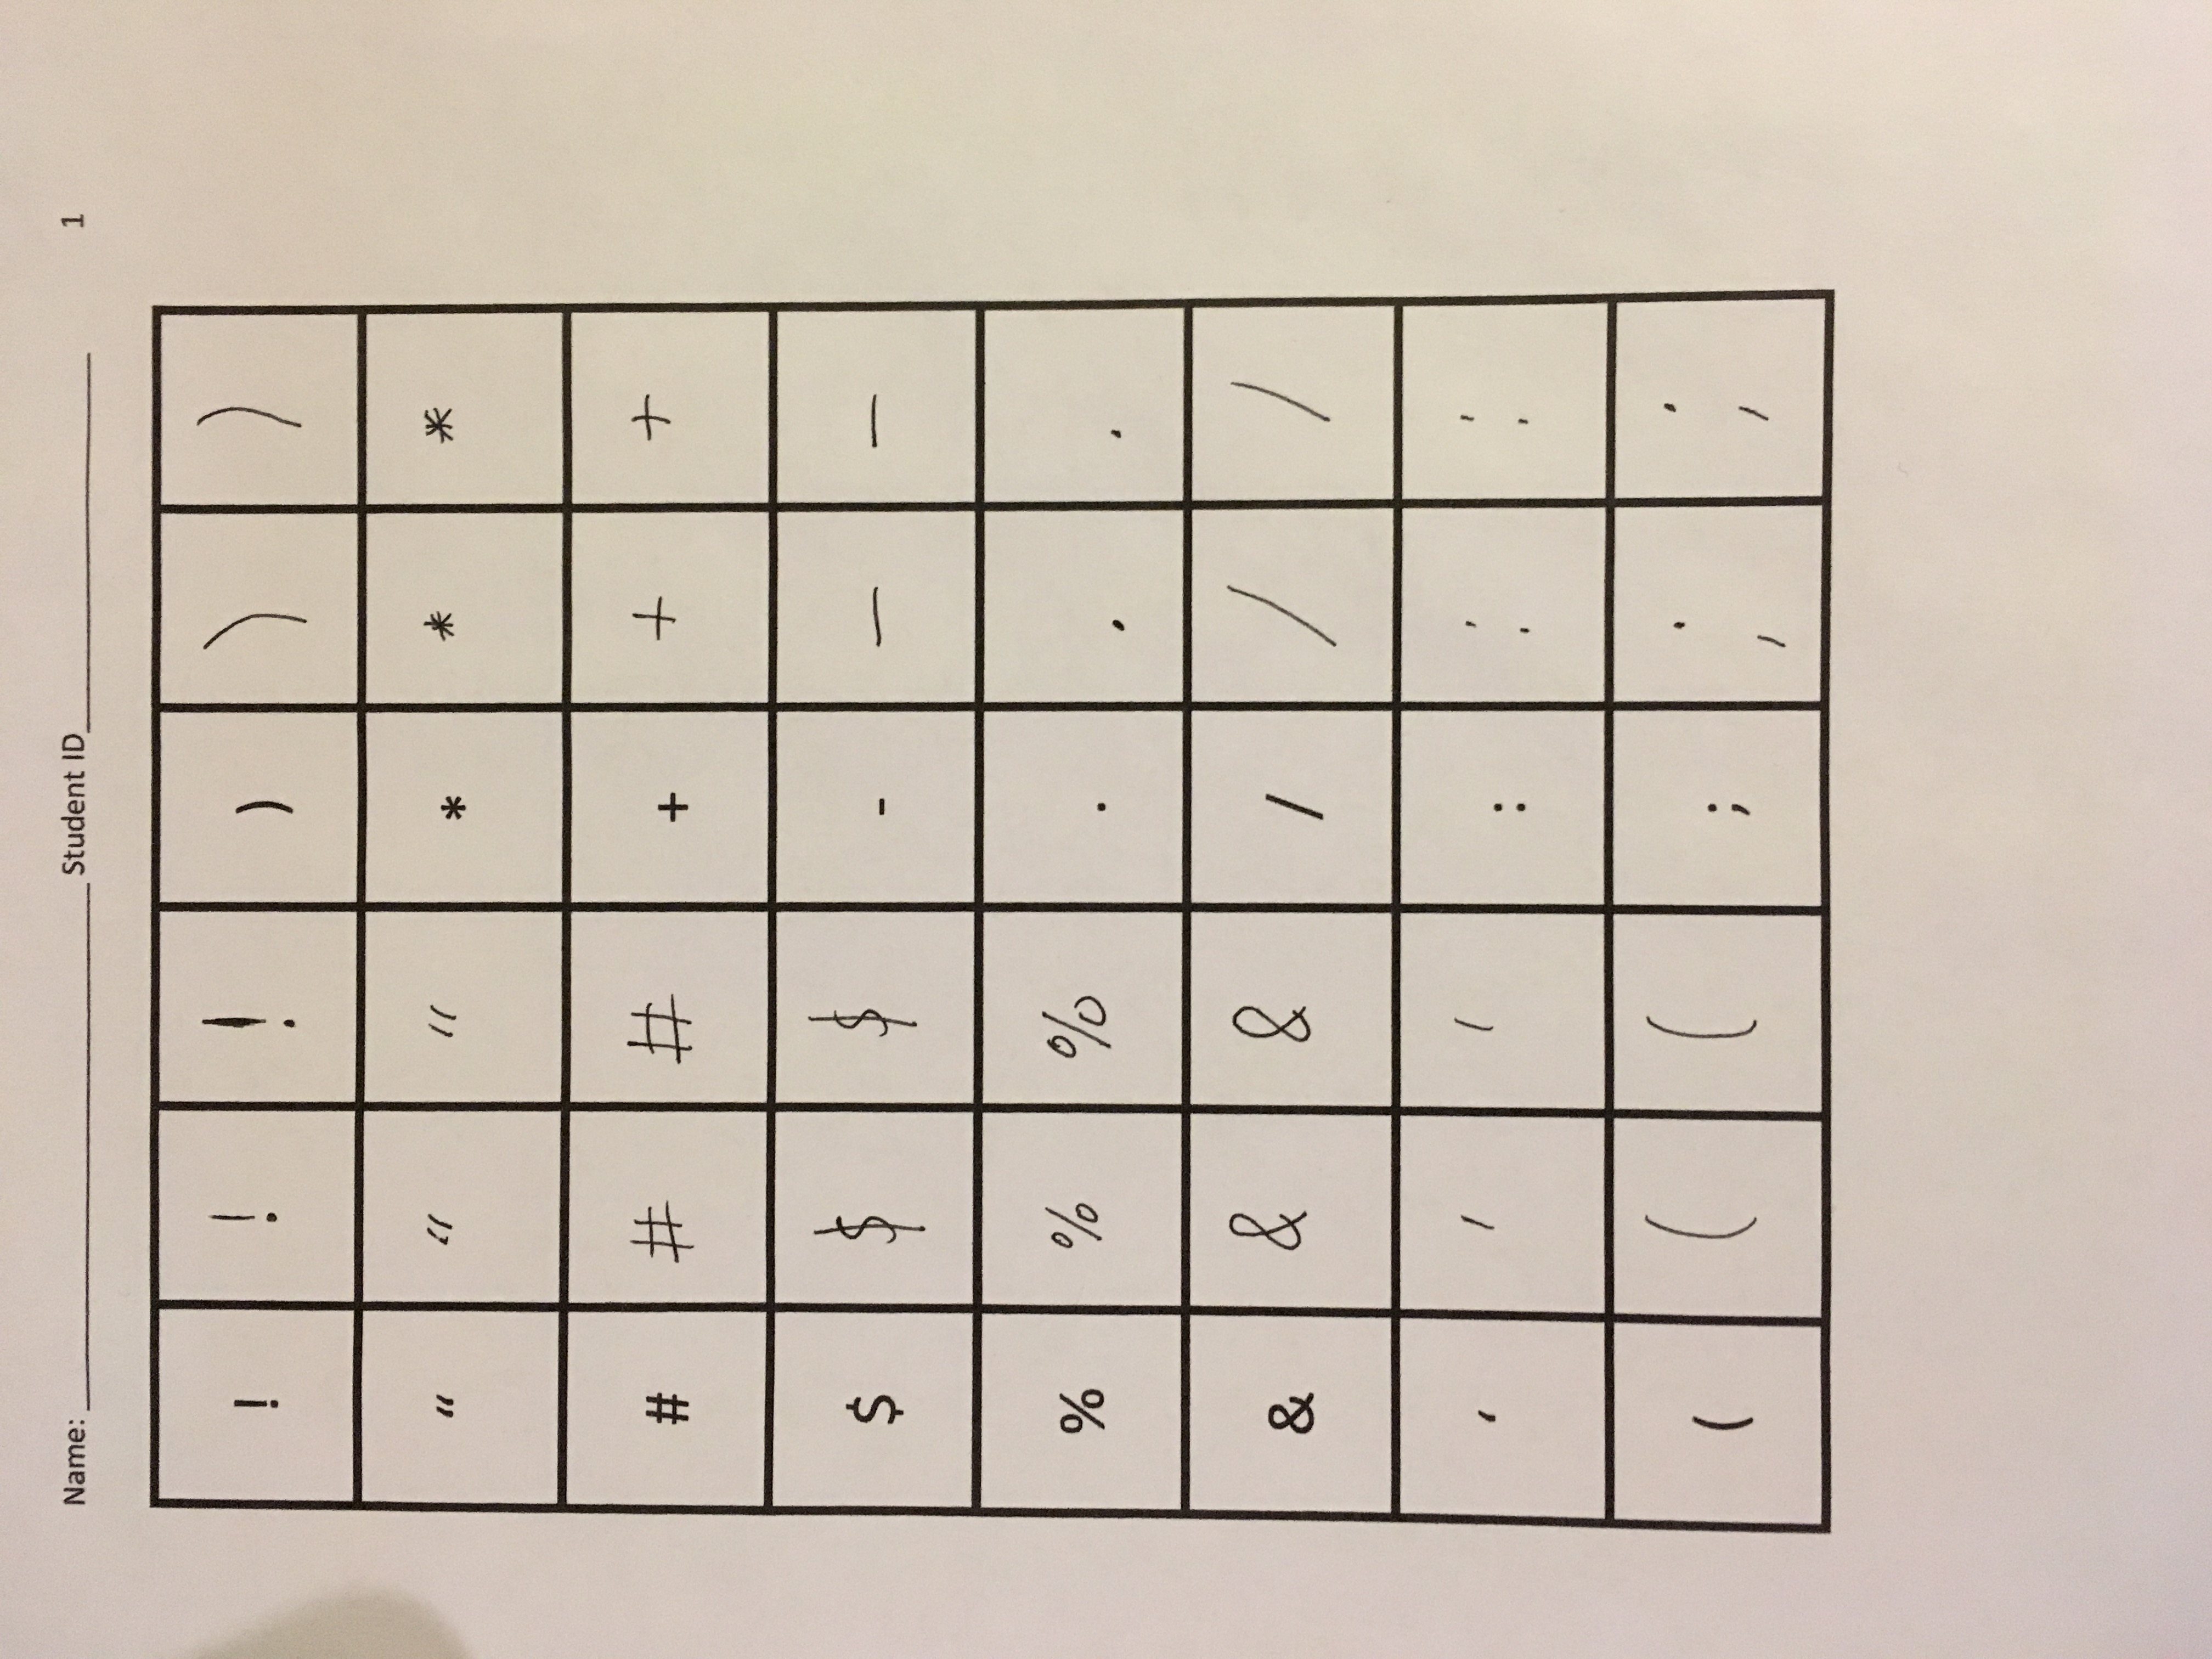 Name: ______________________________ Student ID______________________ 1
! ! ! ) ) )
“ “ “ * * *
# # # + + +
$ $ $ - - -
% % % . . .
& & & / / /
‘ ‘ ‘ : : :
( ( ( ; ; ;